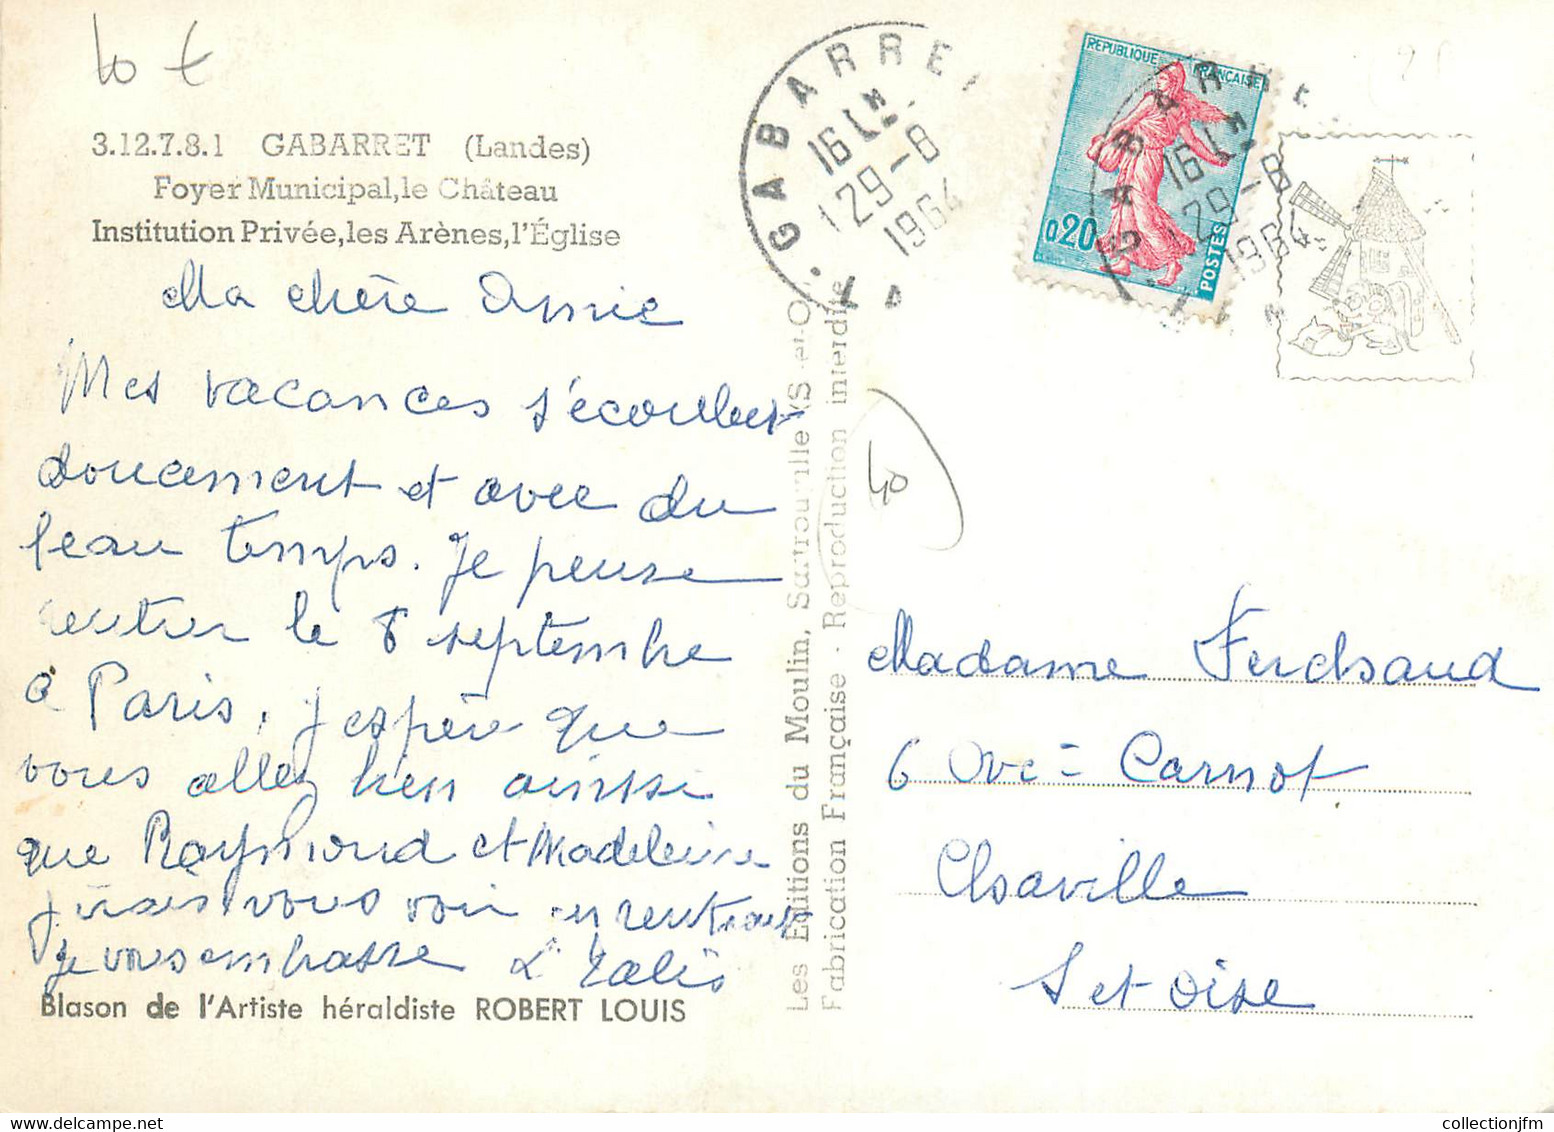 10 €
3.12.7.8.1 GABARRET (Landes)
Foyer Municipal, le Château
Institution Privée, les Arènes, l'Église
Ma chère Amie
Mes vacances s'écoulent
doucement et avec du
beau temps. Je pense
rentrer le 8 septembre
à Paris, j'espère que
vous allez bien ainsi
que Raymond et Madeleine
j'irais vous voir en rentrant
je vous embrasse
Blason de l'Artiste héraldiste ROBERT LOUIS
Les Editions du Moulin, Sartrouville (S.-et-O.)
Fabrication Française - Reproduction interdite
GABARRET
16 H
29-8
1964
REPUBLIQUE FRANÇAISE
0,20
POSTES
GABARRE
16 H
29-8
1964
40
Madame
6 Ave Carnot
Chaville
S et Oise
collectionjfm